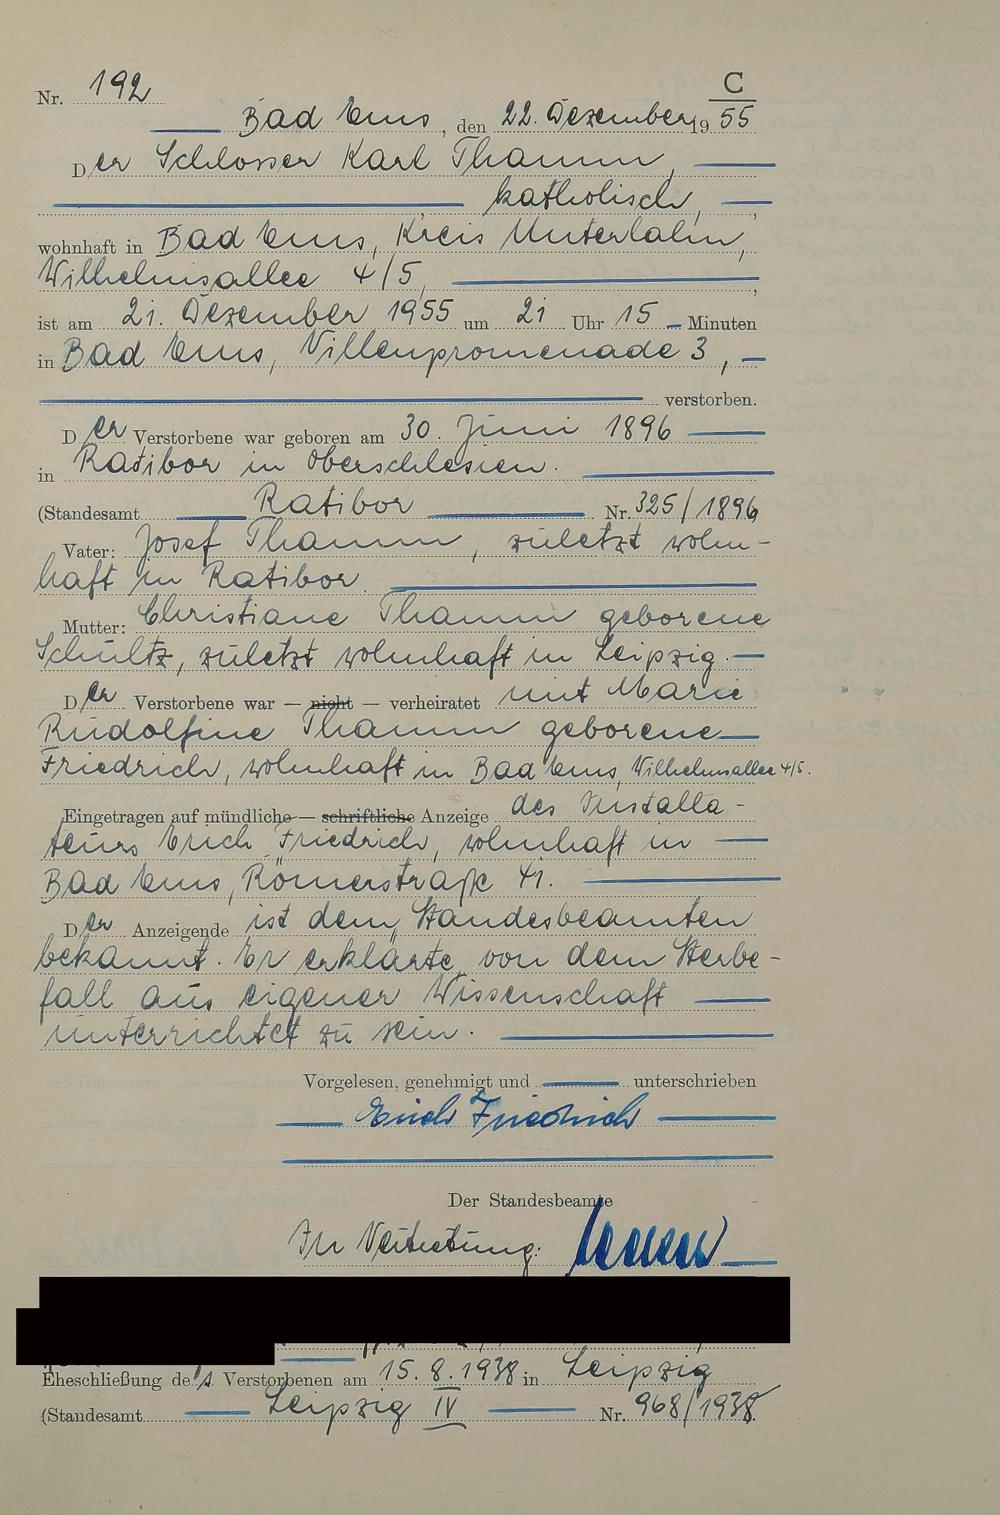 Nr. 192
C
Bad Ems, den 22. Dezember 1955
Der Schlosser Karl Thamm,
katholisch,
wohnhaft in Bad Ems, Kreis Unterlahn,
Wilhelmsallee 4/5,
ist am 21. Dezember 1955 um 21 Uhr 15 Minuten
in Bad Ems, Villenpromenade 3,
verstorben.
Der Verstorbene war geboren am 30. Juni 1896
in Ratibor in Oberschlesien.
(Standesamt Ratibor Nr. 325/1896
Vater: Josef Thamm, zuletzt wohn-
haft in Ratibor.
Mutter: Christiane Thamm geborene
Schultz, zuletzt wohnhaft in Leipzig.
Der Verstorbene war — nicht — verheiratet mit Marie
Rudolfine Thamm geborene
Friedrich, wohnhaft in Bad Ems, Wilhelmsallee 4/5.
Eingetragen auf mündliche — schriftliche Anzeige des Installa-
teurs Erich Friedrich, wohnhaft in
Bad Ems, Römerstraße 41.
Der Anzeigende ist dem Standesbeamten
bekannt. Er erklärte, von dem Sterbe-
fall aus eigener Wissenschaft
unterrichtet zu sein.
Vorgelesen, genehmigt und unterschrieben
Erich Friedrich
Der Standesbeamte
In Vertretung:
Eheschließung des Verstorbenen am 15.8.1938 in Leipzig
(Standesamt Leipzig IV Nr. 968/1938.